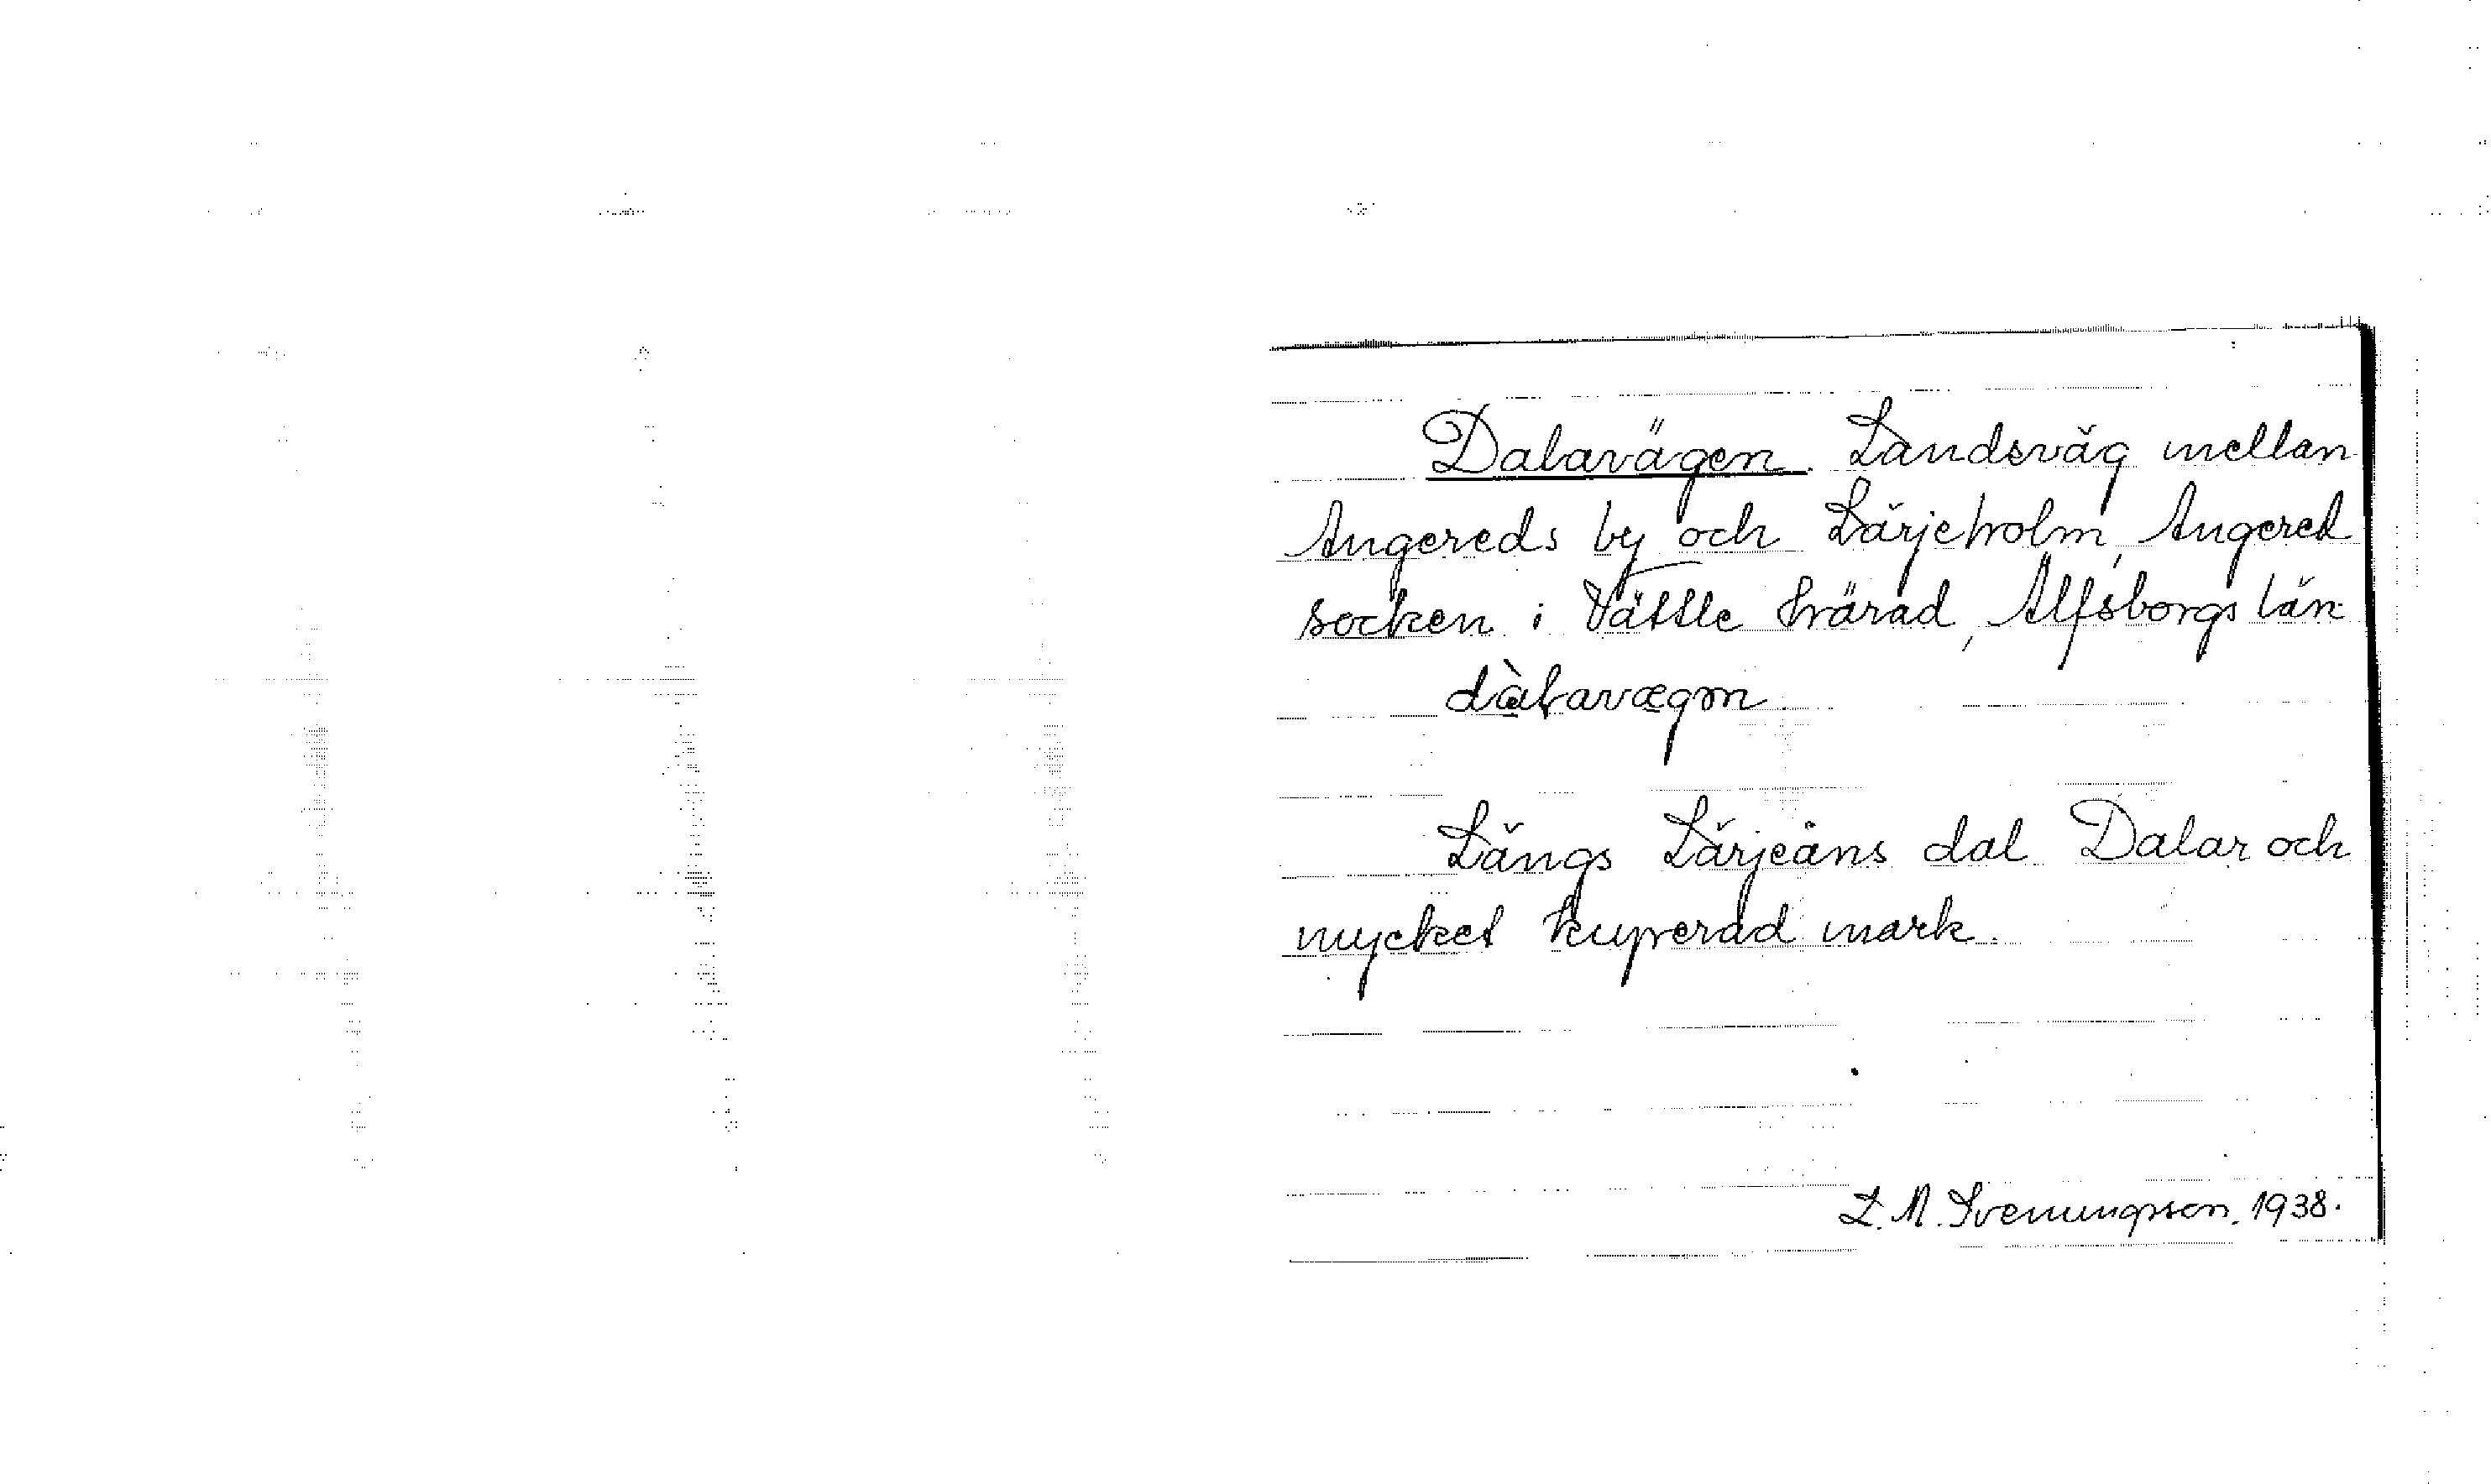 Dalavägen. Landsväg mellan
Angereds by och Lärjeholm, Angered
socken i Vättle härad, Älfsborgs län
dàlavægən
Längs Lärjeåns dal. Dalar och
mycket kuperad mark.
L. M. Svenungsson. 1938.